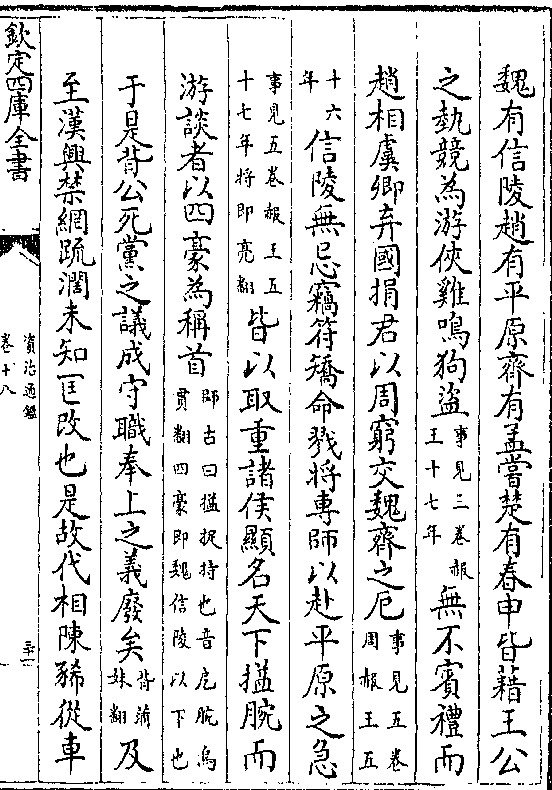 魏有信陵趙有平原齊有孟嘗楚有春申皆藉王公
之埶競為游俠雞鳴狗盜事見三卷赧王十七年無不賓禮而
趙相虞卿弃國捐君以周窮交魏齊之厄事見五卷周赧王五
十六年信陵無忌竊符矯命戮將專師以赴平原之急
事見五卷赧王五十七年將即亮翻皆以取重諸侯顯名天下搤腕而
游談者以四豪為稱首師古曰搤捉持也音戹腕烏貫翻四豪即魏信陵以下也
于是背公死黨之議成守職奉上之義廢矣背蒲妹翻及
至漢興禁網疏濶未知匡改也是故代相陳豨從車
欽定四庫全書
資治通鑑
卷十八